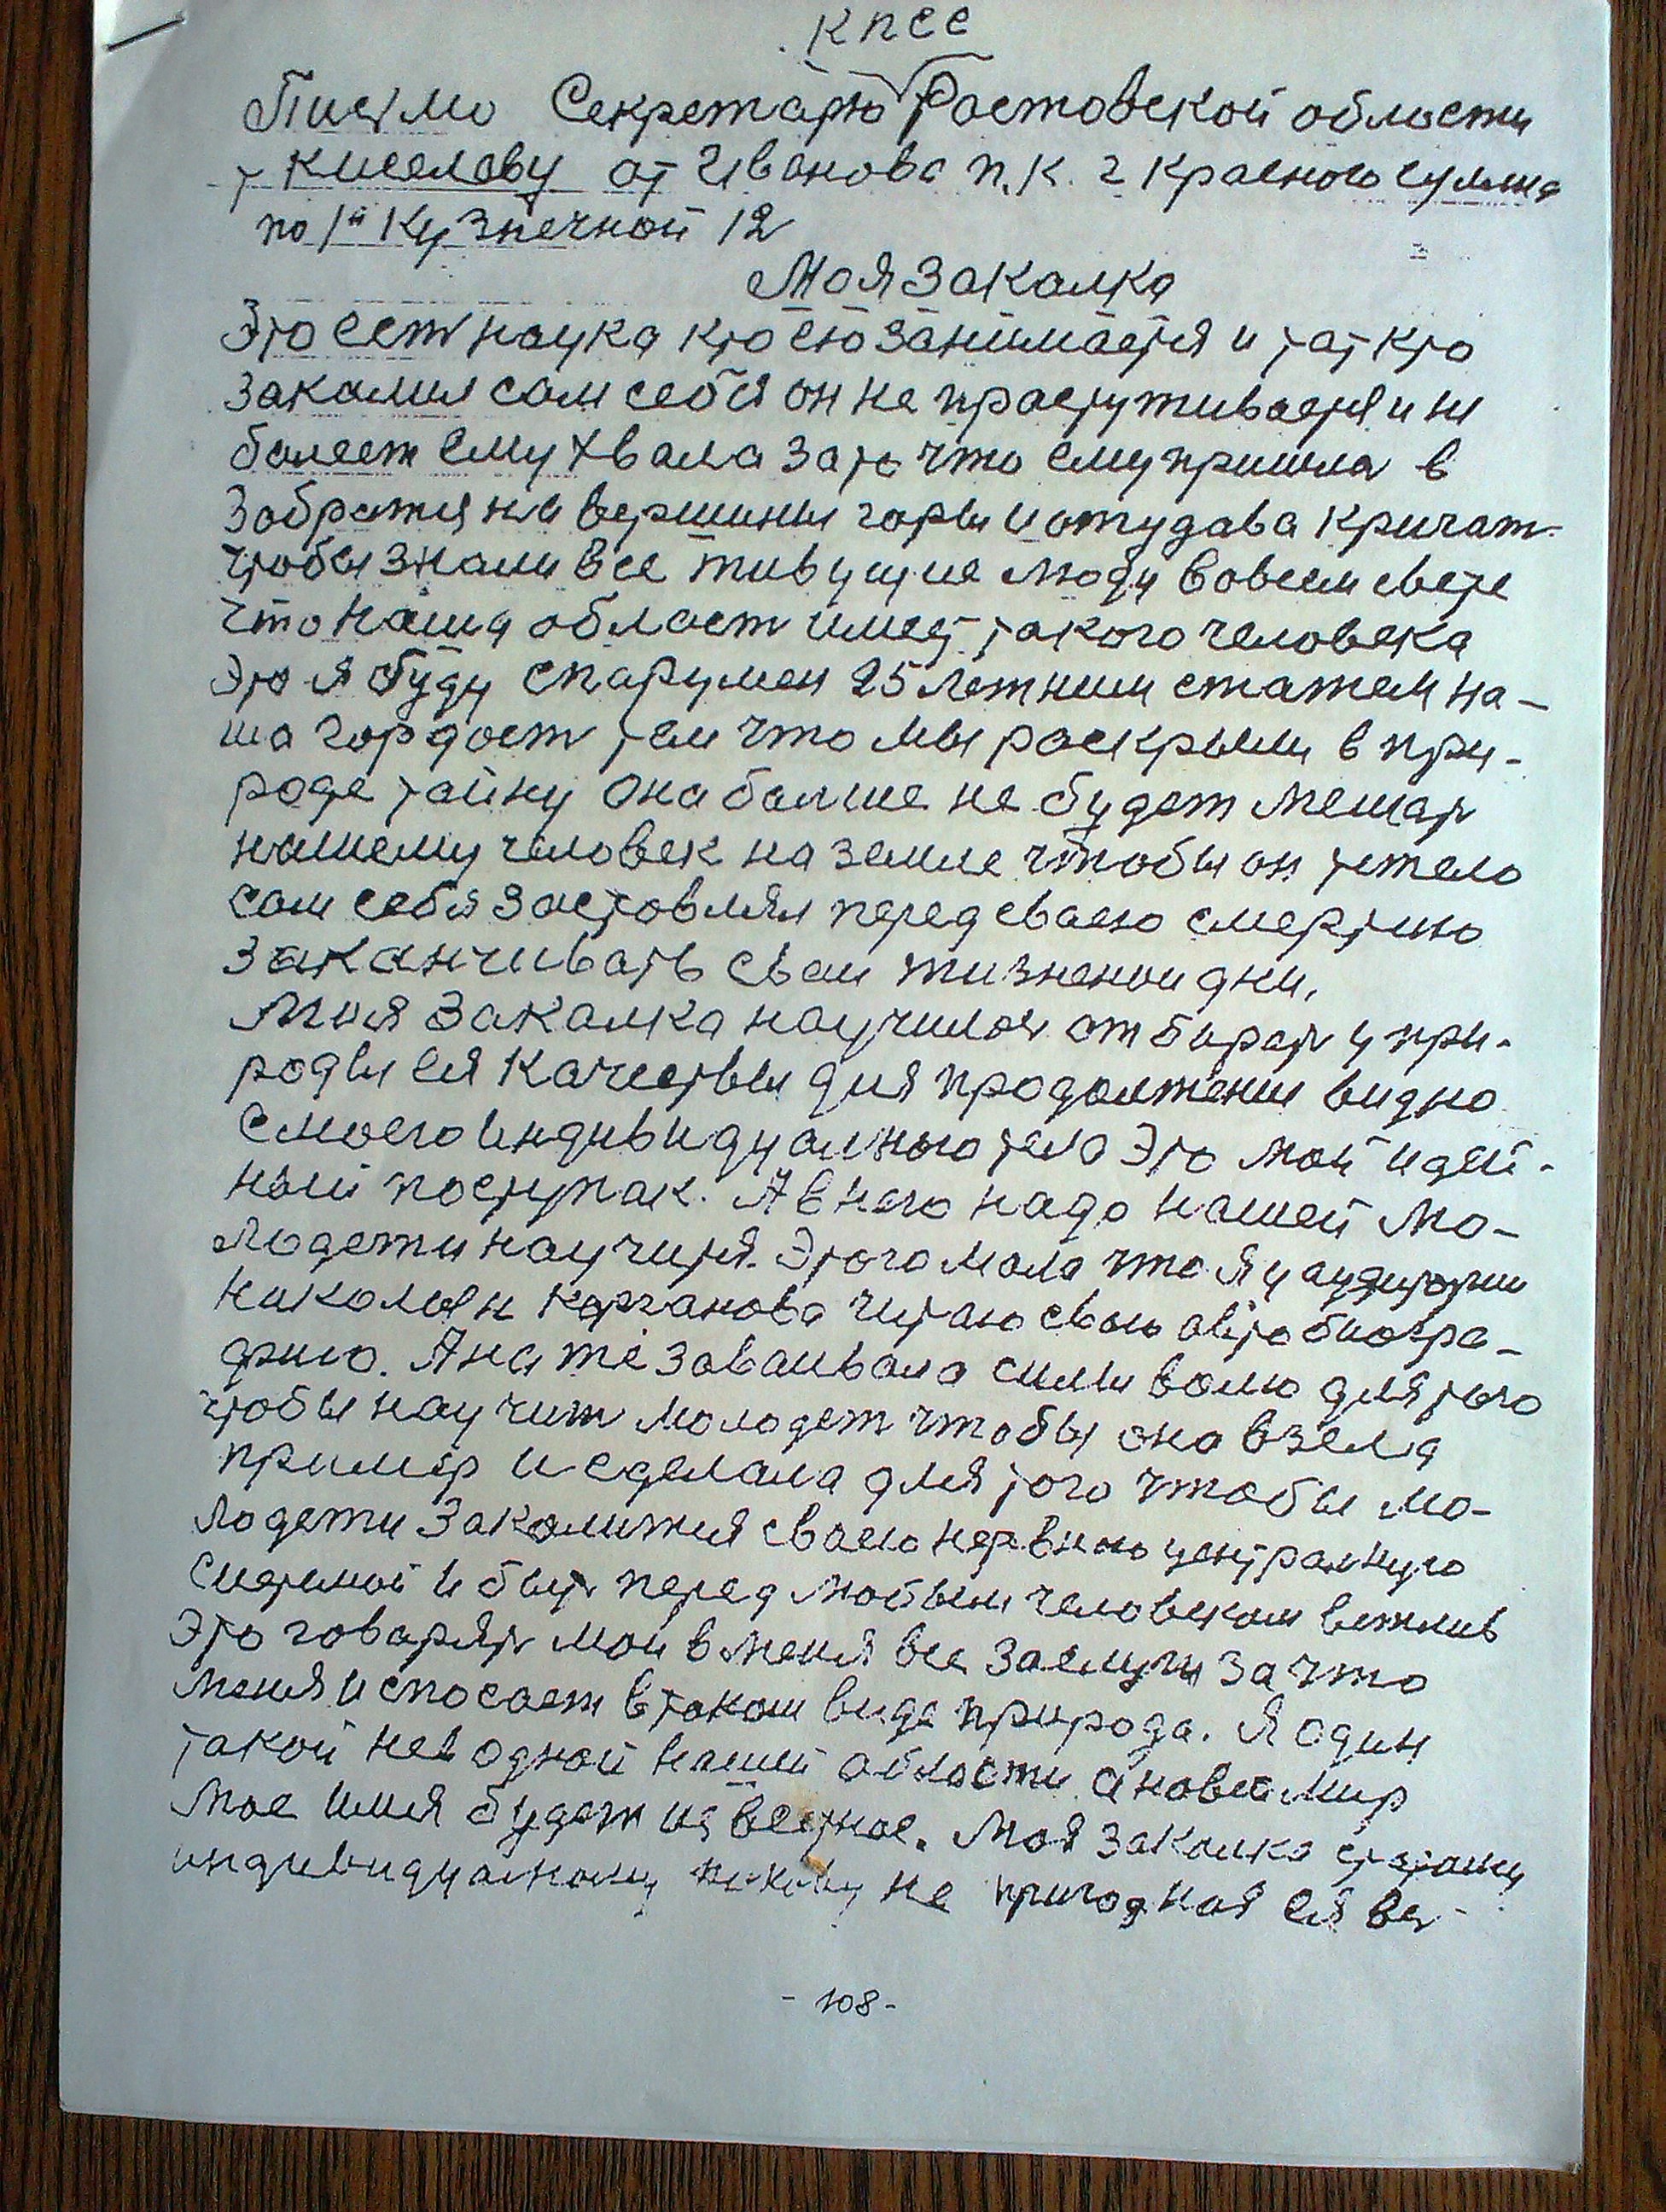 КПСС
Письмо Секретарю Ростовской области
т Киселаву от Иванова п.к. г Красного сулина
по 1й Кузнечной 12
Моя Закалка
Это есть наука кто ею занимается и тот кто
закалил сам себя он не простуживается и ни
балеет ему хвала за то что ему пришла в
Забратся на вершины горы и оттудава кричат
чтобы знали все живущие люди вовсем свете
что наша област имеет такого человека
Это я буду с парумен 25 летним стажем на-
ша гордост тем что мы раскрыли в при-
роде тайну она балше не будет мешат
нашему человек на земле чтобы он тежело
сам себя заставлял перед сваею смертию
заканчивать сваи жизненои дни,
Моя Закалка научилас отбират у при-
роды ея качествы для продолжении видно
с моего индивидуалного тела Это мой идей-
ный поступак. А в него надо нашей мо-
лодежи научится. Этого мало что я у аудитории
читаю свою автобиогра-
фию. Она же заваивала силы волю для того
чтобы научит молодеж чтобы она взела
пример и сделала для того чтобы мо-
лодежи закалится сваею нервною централную
системой и быт перед любым человеком вежлив
Это говарят мои в меня все заслуги за что
меня и спосает в таком виде природа. Я один
такой не в одной нашей области а на вес мир
мое имя будет известное. Моя закалка
индивидуалному не пригодная ея
- 108 -